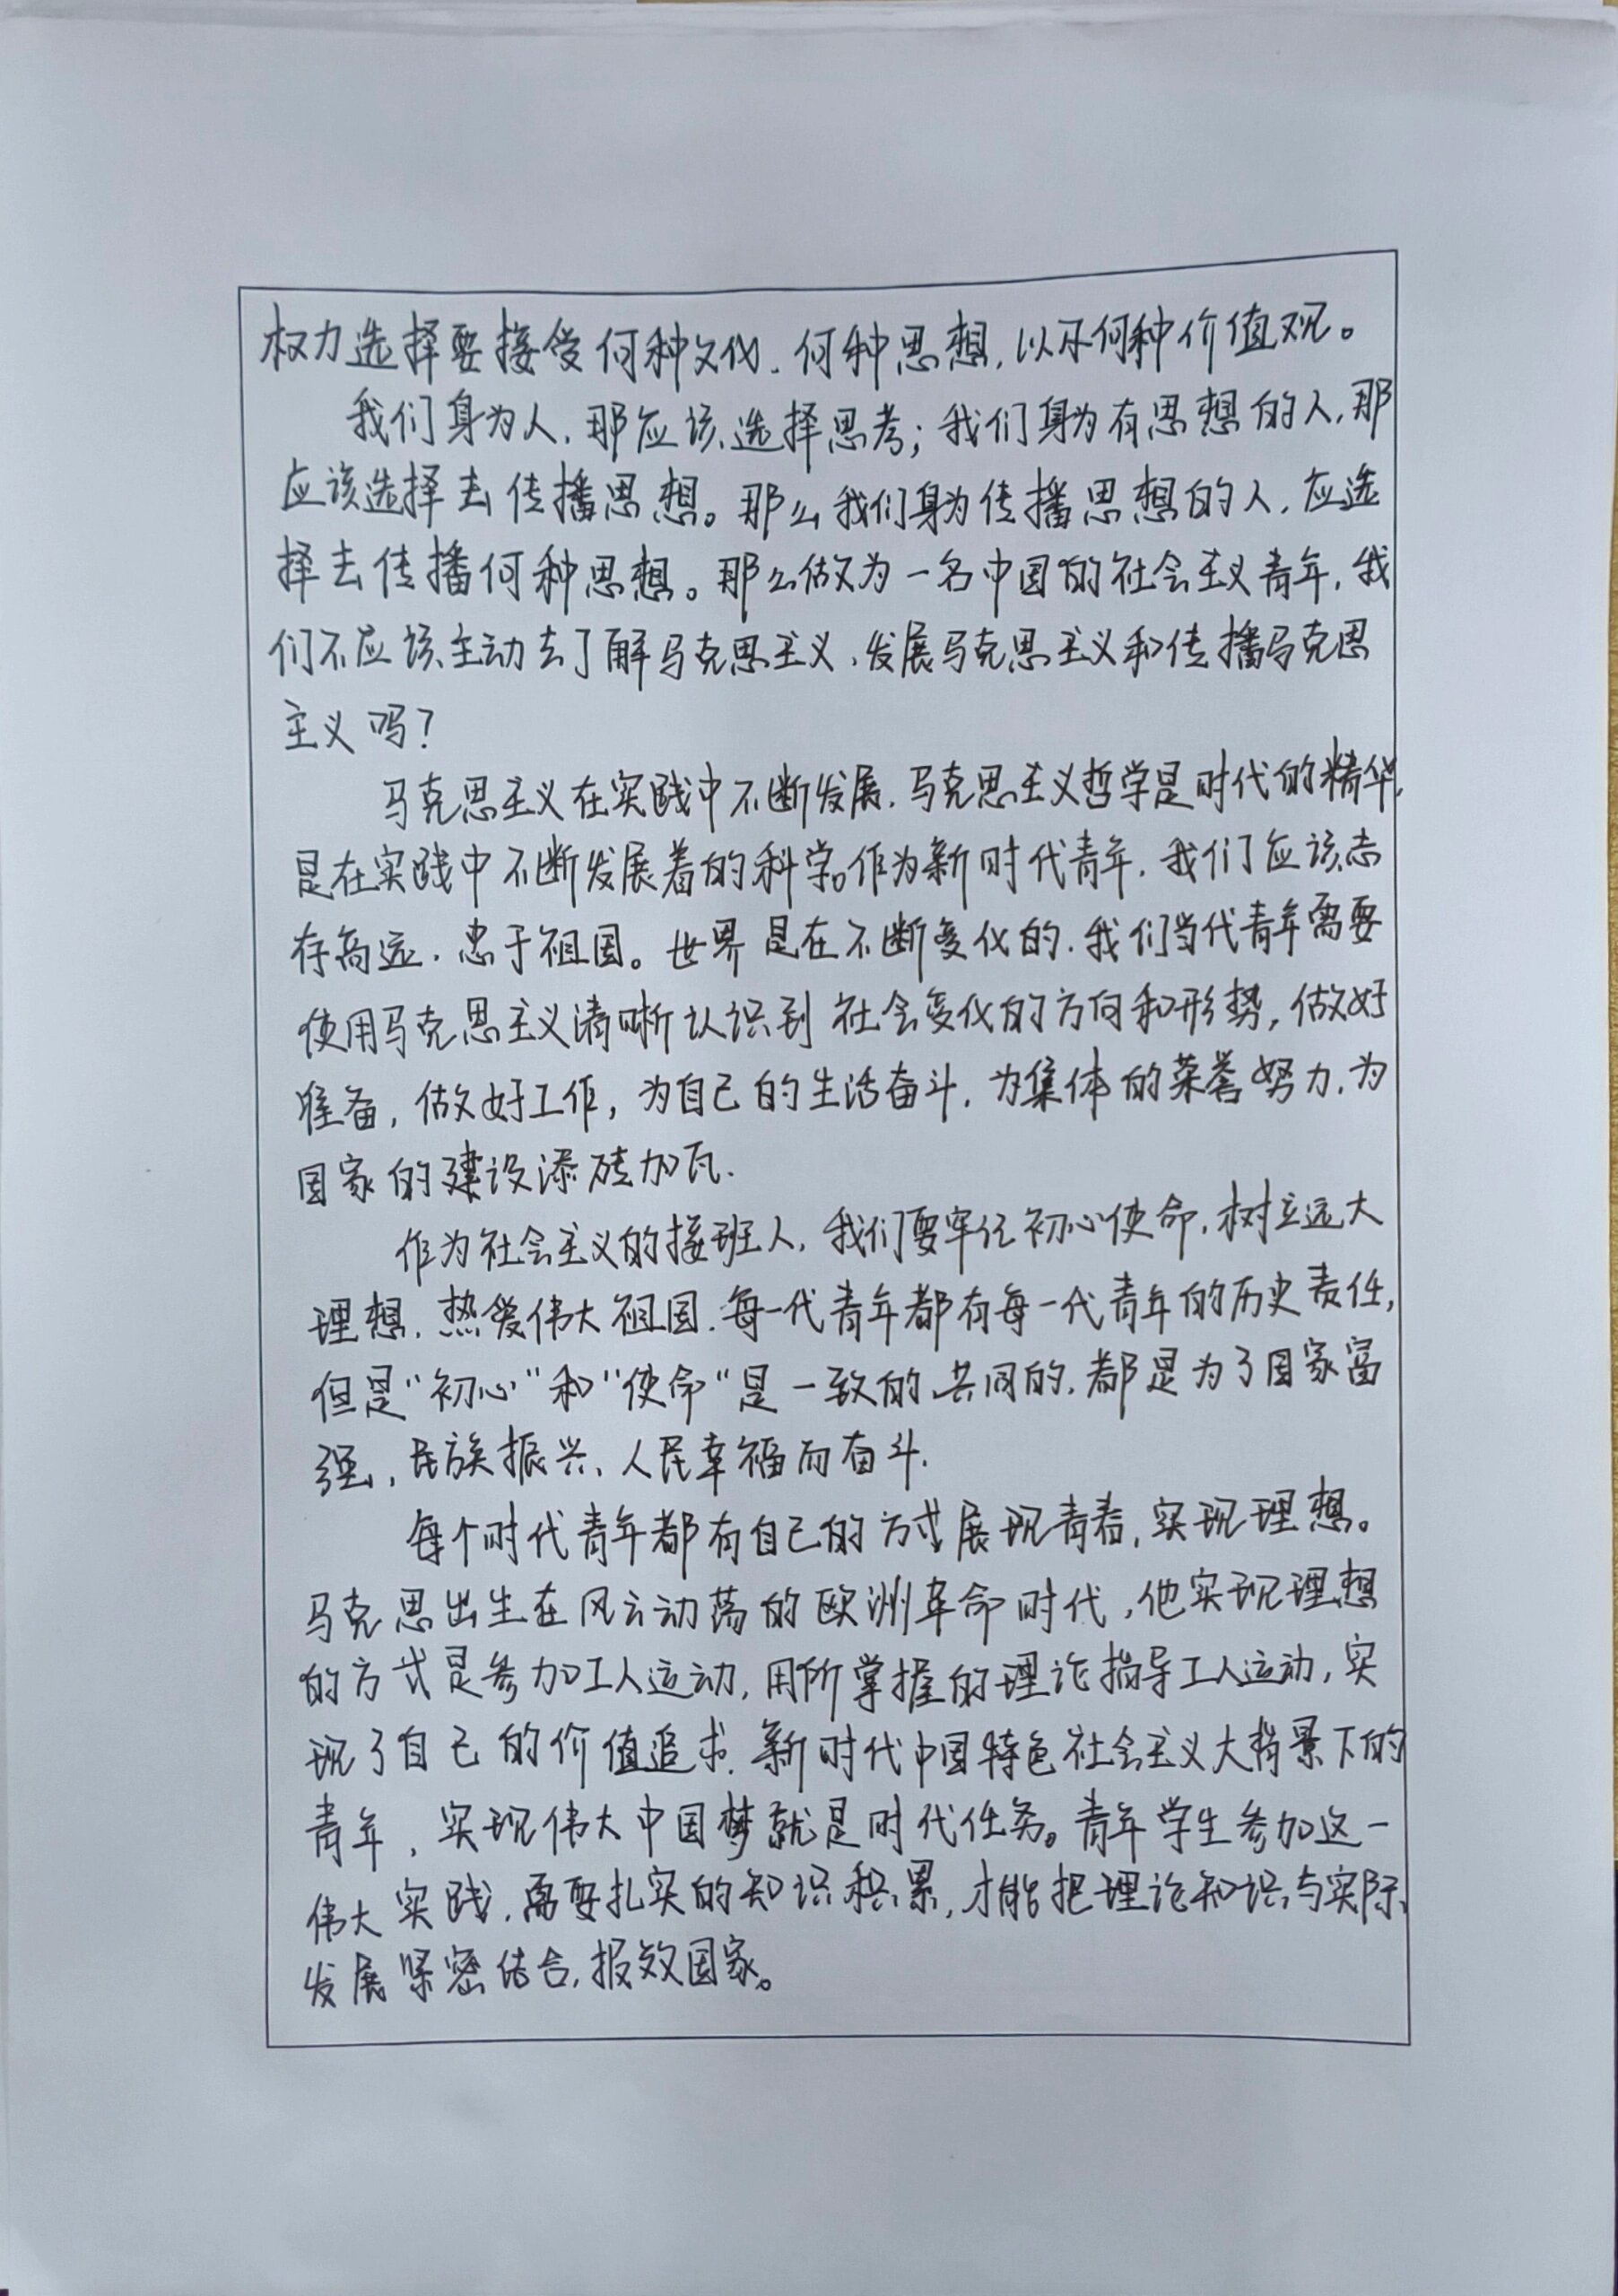 权力选择要接受何种文化、何种思想,以及何种价值观。
我们身为人,那应该选择思考;我们身为有思想的人,那
应该选择去传播思想。那么我们身为传播思想的人,应选
择去传播何种思想。那么做为一名中国的社会主义青年,我
们不应该主动去了解马克思主义、发展马克思主义和传播马克思
主义吗?
马克思主义在实践中不断发展,马克思主义哲学是时代的精华,
是在实践中不断发展着的科学。作为新时代青年,我们应该志
存高远,忠于祖国。世界是在不断变化的,我们当代青年需要
使用马克思主义清晰认识到社会变化的方向和形势,做好
准备,做好工作,为自己的生活奋斗,为集体的荣誉努力,为
国家的建设添砖加瓦.
作为社会主义的接班人,我们要牢记初心使命,树立远大
理想,热爱伟大祖国.每一代青年都有每一代青年的历史责任,
但是“初心”和“使命”是一致的、共同的,都是为了国家富
强、民族振兴、人民幸福而奋斗.
每个时代青年都有自己的方式展现青春,实现理想。
马克思出生在风云动荡的欧洲革命时代,他实现理想
的方式是参加工人运动,用所掌握的理论指导工人运动,实
现了自己的价值追求.新时代中国特色社会主义大背景下的
青年,实现伟大中国梦就是时代任务。青年学生参加这一
伟大实践,需要扎实的知识积累,才能把理论知识与实际
发展紧密结合,报效国家。